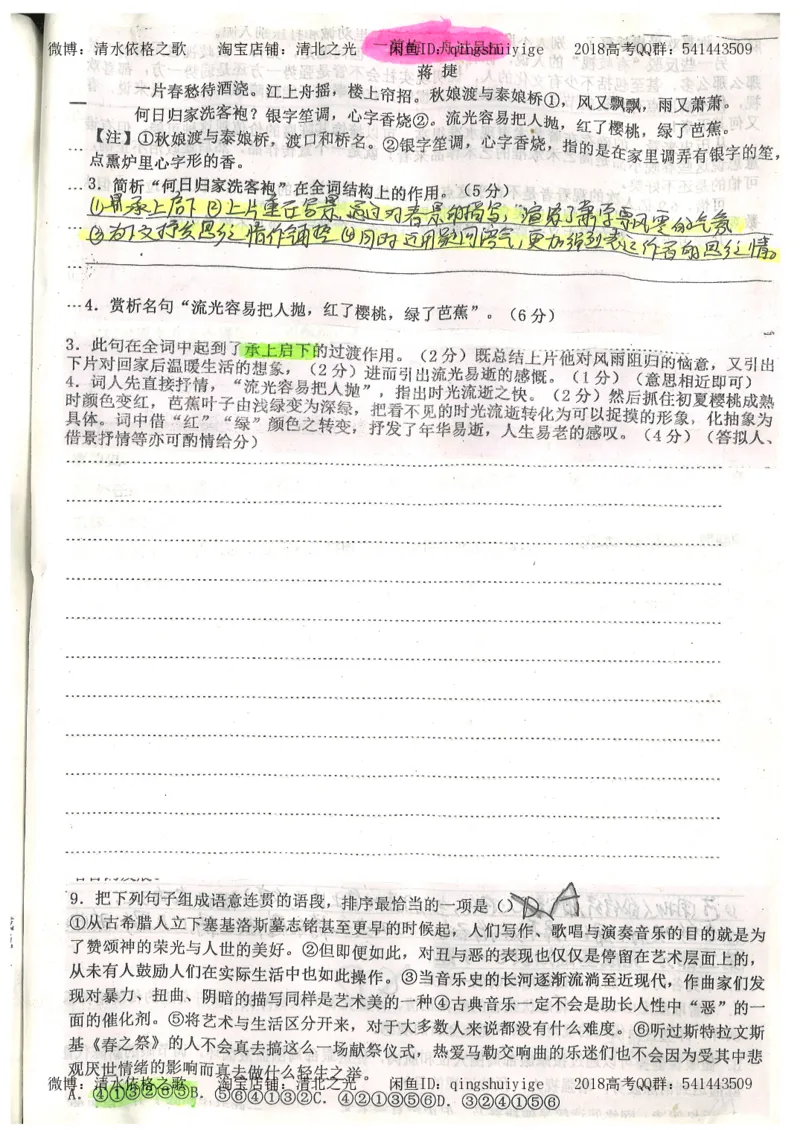 微博：清水依格之歌 淘宝店铺：清北之光 闲鱼ID：qingshuiyige 2018高考QQ群：541443509
蒋 捷
一片春愁待酒浇。江上舟摇，楼上帘招。秋娘渡与泰娘桥①，风又飘飘，雨又萧萧。
何日归家洗客袍？银字笙调，心字香烧②。流光容易把人抛，红了樱桃，绿了芭蕉。
【注】①秋娘渡与泰娘桥，渡口和桥名。②银字笙调，心字香烧，指的是在家里调弄有银字的笙，
点熏炉里心字形的香。
3．简析“何日归家洗客袍”在全词结构上的作用。（5分）
①是承上启下 ②上片重在写景，通过对春景的描写，渲染了萧索的气氛
③为下文抒发思乡之情作铺垫 ④同时运用疑问语气，更加强烈表达作者的思乡之情。
4．赏析名句“流光容易把人抛，红了樱桃，绿了芭蕉”。（6分）
3．此句在全词中起到了承上启下的过渡作用。（2分）既总结上片他对风雨阻归的恼意，又引出
下片对回家后温暖生活的想象，（2分）进而引出流光易逝的感慨。（1分）（意思相近即可）
4．词人先直接抒情，“流光容易把人抛”，指出时光流逝之快。（2分）然后抓住初夏樱桃成熟
时颜色变红，芭蕉叶子由浅绿变为深绿，把看不见的时光流逝转化为可以捉摸的形象，化抽象为
具体。词中借“红”“绿”颜色之转变，抒发了年华易逝，人生易老的感叹。（4分）（答拟人、
借景抒情等亦可酌情给分）
9．把下列句子组成语意连贯的语段，排序最恰当的一项是（）D A
①从古希腊人立下塞基洛斯墓志铭甚至更早的时候起，人们写作、歌唱与演奏音乐的目的就是为
了赞颂神的荣光与人世的美好。②但即便如此，对丑与恶的表现也仅仅是停留在艺术层面上的，
从未有人鼓励人们在实际生活中也如此操作。③当音乐史的长河逐渐流淌至近现代，作曲家们发
现对暴力、扭曲、阴暗的描写同样是艺术美的一种④古典音乐一定不会是助长人性中“恶”的一
面的催化剂。⑤将艺术与生活区分开来，对于大多数人来说都没有什么难度。⑥听过斯特拉文斯
基《春之祭》的人不会真去搞这么一场献祭仪式，热爱马勒交响曲的乐迷们也不会因为受其中悲
观厌世情绪的影响而真去做什么轻生之举。
微博：清水依格之歌 淘宝店铺：清北之光 闲鱼ID：qingshuiyige 2018高考QQ群：541443509
A．④①③②⑥⑤B．⑤⑥④①③②C．④②①③⑤⑥D．③②④①⑤⑥